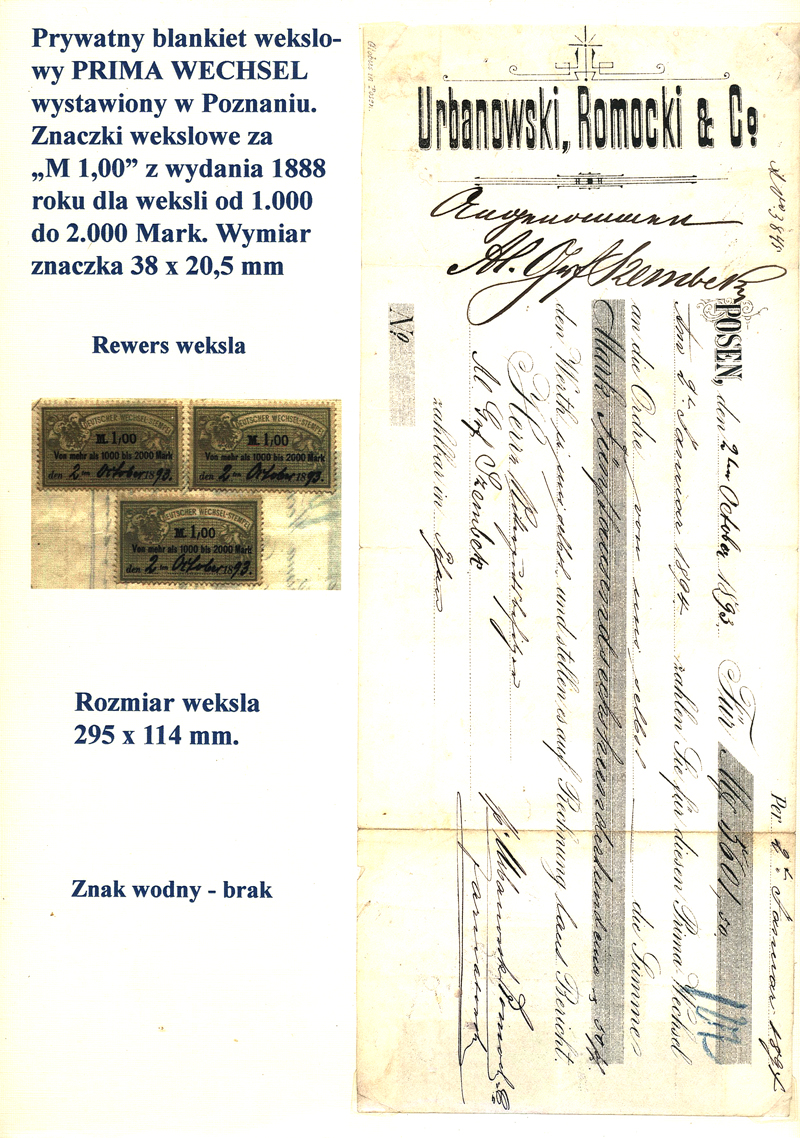 Prywatny blankiet wekslo-
wy PRIMA WECHSEL
wystawiony w Poznaniu.
Znaczki wekslowe za
„M 1,00” z wydania 1888
roku dla weksli od 1.000
do 2.000 Mark. Wymiar
znaczka 38 x 20,5 mm
Rewers weksla
DEUTSCHER WECHSEL-STEMPEL
M. 1,00
Von mehr als 1000 bis 2000 Mark
den 2 ten October 1893.
DEUTSCHER WECHSEL-STEMPEL
M. 1,00
Von mehr als 1000 bis 2000 Mark
den 2 ten October 1893.
DEUTSCHER WECHSEL-STEMPEL
M. 1,00
Von mehr als 1000 bis 2000 Mark
den 2 ten October 1893.
Rozmiar weksla
295 x 114 mm.
Znak wodny - brak
Urbanowski, Romocki & Co
Angenommen
Per 2 Januar 1894
POSEN, den 2 ten October 1893. Für M
Am 2 Januar 1894 zahlen Sie für diesen Prima Wechsel
an die Ordre von uns selbst die Summe
Mark fünftausendsechshundertundeins
den Werth in uns selbst und stellen es auf Rechnung laut Bericht.
Herrn
Al Graf Szembek
zahlbar in Posen
No